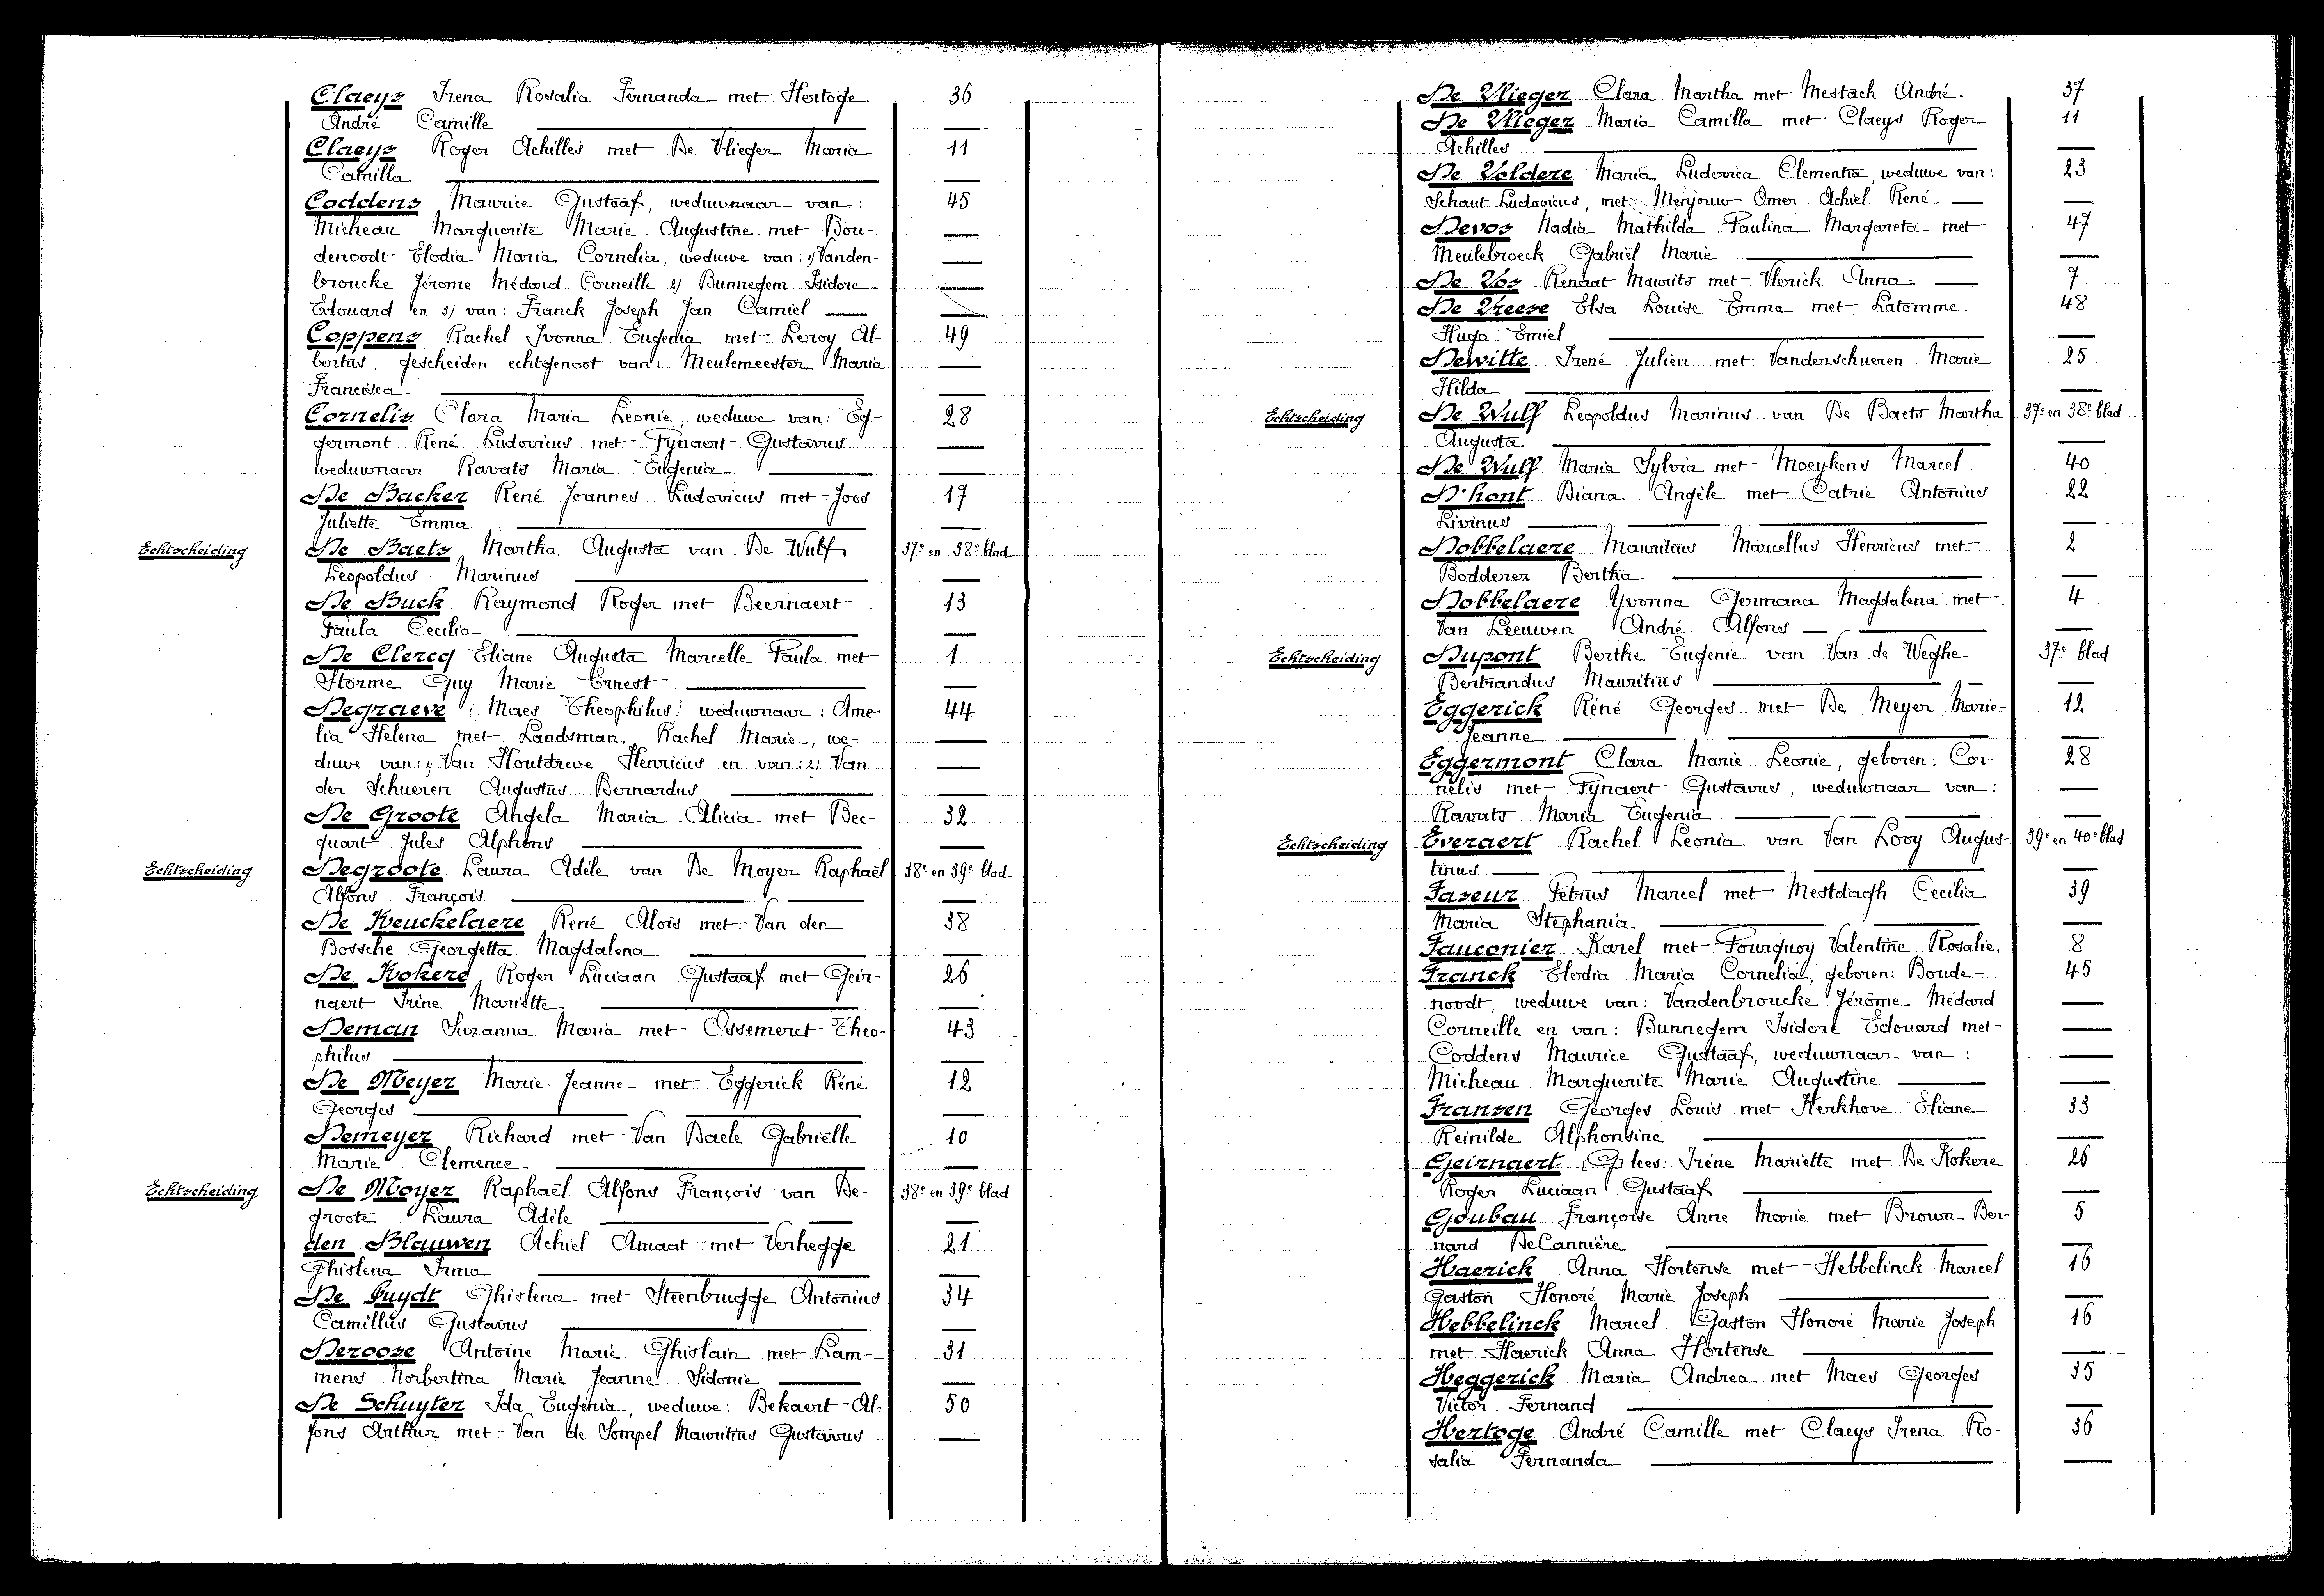 Claeys Irena Rosalia Fernanda met Hertoge 36
André Camille
Claeys Roger Achilles met De Vlieger Maria 11
Camilla
Coddens Maurice Gustaaf, weduwnaar van: 45
Micheau Marguerite Marie Augustine met Bou-
denoodt Elodia Maria Cornelia, weduwe van: 1) Vanden-
broucke Jérome Médard Corneille 2) Bunnegem Isidore
Edouard en 3) van: Franck Joseph Jan Camiel
Coppens Rachel Ivonna Eugenia met Leroy Al- 49
bertus, gescheiden echtgenoot van: Meulemeester Maria
Francisca
Cornelis Clara Maria Leonie, weduwe van: Eg- 28
germont René Ludovicus met Fynaert Gustavus
weduwnaar Ravats Maria Eugenia
De Backer René Joannes Ludovicus met Joos 17
Juliette Emma
Echtscheiding De Baets Martha Augusta van De Wulf 37e en 38e blad
Leopoldus Marinus
De Buck Raymond Roger met Beernaert 13
Paula Cecilia
De Clercq Eliane Augusta Marcelle Paula met 1
Storme Guy Marie Ernest
Degraeve (Maes Theophilus) weduwnaar: Ame- 44
lia Helena met Landsman Rachel Marie, we-
duwe van: 1) Van Houtdreve Henricus en van: 2) Van
der Schueren Augustus Bernardus
De Groote Angela Maria Alicia met Bec- 32
quart Jules Alphons
Echtscheiding Degroote Laura Adèle van De Moyer Raphaël 38e en 39e blad
Alfons François
De Keuckelaere René Alois met Van den 38
Bossche Georgetta Magdalena
De Kokere Roger Luciaan Gustaaf met Geir- 26
naert Irène Mariette
Deman Suzanna Maria met Ossemeret Theo- 43
philus
De Meyer Marie-Jeanne met Eggerick Réné 12
Georges
Demeyer Richard met Van Daele Gabriëlle 10
Marie Clemence
Echtscheiding De Moyer Raphaël Alfons François van De- 38e en 39e blad
groote Laura Adèle
den Blauwen Achiel Amaat met Verhegge 21
Ghislena Irma
De Puydt Ghislena met Steenbrugge Antonius 34
Camillus Gustavus
Deroose Antoine Marie Ghislain met Lam- 31
mens Norbertina Marie Jeanne Sidonie
De Schuyter Ida Eugenia, weduwe: Bekaert Al- 50
fons Arthur met Van de Sompel Mauritius Gustavus
De Vlieger Clara Martha met Mestach André 37
De Vlieger Maria Camilla met Claeys Roger 11
Achilles
De Voldere Maria Ludovica Clementia, weduwe van: 23
Schaut Ludovicus, met Merjouw Omer Achiel René
Devos Nadia Mathilda Paulina Margareta met 47
Meulebroeck Gabriël Marie
De Vos Renaat Maurits met Vlerick Anna 7
De Vreese Elsa Louise Emma met Latomme 48
Hugo Emiel
Dewitte Irené Julien met Vanderschueren Marie 25
Hilda
Echtscheiding De Wulf Leopoldus Marinus van De Baets Martha 37e en 38e blad
Augusta
De Wulf Maria Sylvia met Moeykens Marcel 40
D'hont Diana Angèle met Catrie Antonius 22
Livinus
Dobbelaere Mauritius Marcellus Henricus met 2
Bodderez Bertha
Dobbelaere Yvonna Germana Magdalena met 4
Van Leeuwen André Alfons
Echtscheiding Dupont Berthe Eugenie van Van de Weghe 37e blad
Bertrandus Mauritius
Eggerick Réné Georges met De Meyer Marie- 12
Jeanne
Eggermont Clara Marie Leonie, geboren: Cor- 28
nelis met Fynaert Gustavus, weduwnaar van:
Ravats Maria Eugenia
Echtscheiding Everaert Rachel Leonia van Van Looy Augus- 39e en 40e blad
tinus
Faseur Petrus Marcel met Mestdagh Cecilia 39
Maria Stephania
Fauconier Karel met Fourquoy Valentine Rosalie 8
Franck Elodia Maria Cornelia, geboren: Boude- 45
noodt, weduwe van: Vandenbroucke Jérôme Médard
Corneille en van: Bunnegem Isidore Edouard met
Coddens Maurice Gustaaf, weduwnaar van:
Micheau Marguerite Marie Augustine
Fransen Georges Louis met Kerkhove Eliane 33
Reinilde Alphonsine
Geirnaert (G) lees: Irène Mariette met De Kokere 26
Roger Luciaan Gustaaf
Goubau Françoise Anne Marie met Brown Ber- 5
nard DeCannière
Haerick Anna Hortense met Hebbelinck Marcel 16
Gaston Honoré Marie Joseph
Hebbelinck Marcel Gaston Honoré Marie Joseph 16
met Haerick Anna Hortense
Heggerick Maria Andrea met Maes Georges 35
Victor Fernand
Hertoge André Camille met Claeys Irena Ro- 36
salia Fernanda